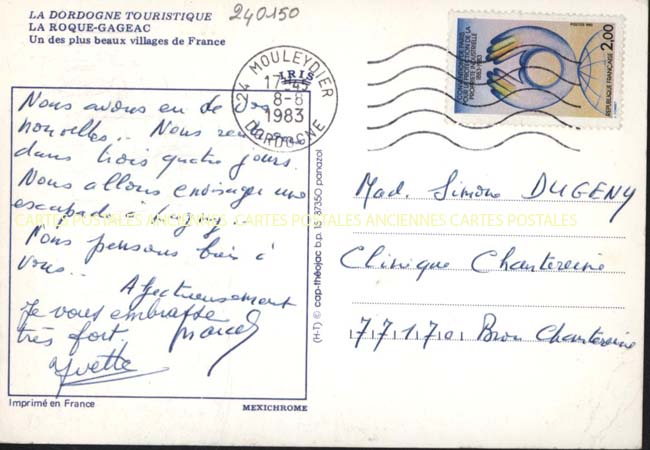 LA DORDOGNE TOURISTIQUE
LA ROQUE-GAGEAC
Un des plus beaux villages de France
240150
24 MOULEYDIER
IRIS
17-45
8-8
1983
DORDOGNE
CONVENTION DE PARIS
POUR LA PROTECTION DE LA
PROPRIETE INDUSTRIELLE
1883-1983
POSTES 1983
2,00
REPUBLIQUE FRANCAISE
Nous avons eu de vos
nouvelles.. Nous
dans trois quatre jours.
Nous allons envisager une
escapade à
Nous pensons bien à
vous...
Affectueusement
Je vous embrasse Marcel
très fort.
Yvette
CARTES POSTALES ANCIENNES CARTES POSTALES ANCIENNES CARTES POSTALES
(H-T) © cap-théojac b.p. 15 87350 panazol
Mad. Simone DUGENY
Clinique Chantereine
77170 Brou Chantereine
Imprimé en France
MEXICHROME